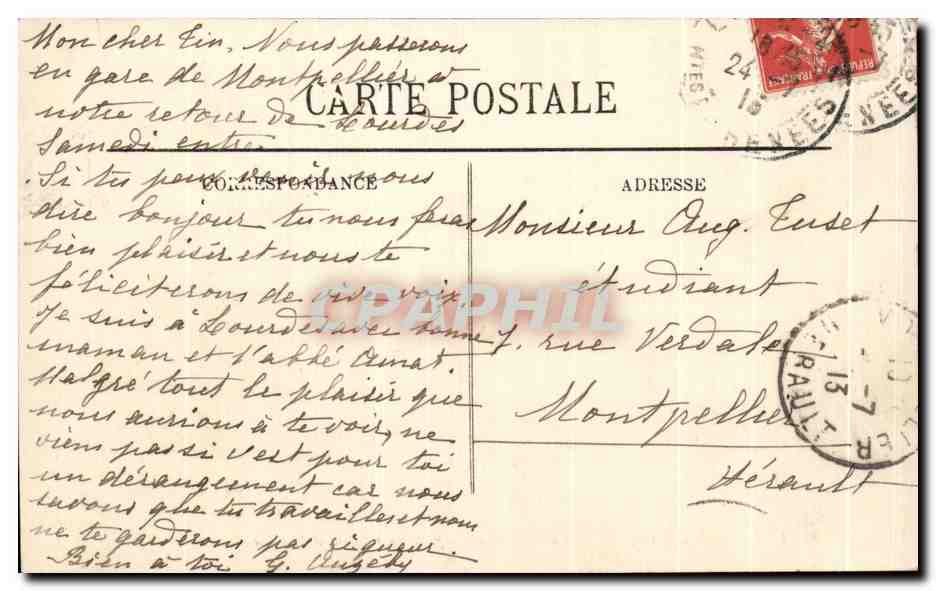 Mon cher Tin, Nous passerons
en gare de Montpellier à
notre retour de Lourdes
Samedi entre
CARTE POSTALE
CORRESPONDANCE
Si tu peux venir nous
dire bonjour tu nous feras
bien plaisir et nous te
féliciterons de vive voix.
Je suis à Lourdes avec bonne
maman et l'abbé Amat.
Malgré tout le plaisir que
nous aurions à te voir, ne
viens pas si c'est pour toi
un dérangement car nous
savons que tu travailles et nous
ne te garderons pas rigueur.
Bien à toi G.
ADRESSE
Monsieur Aug. Tuset
étudiant
7, rue Verdale
Montpellier
Hérault
CPAPHIL